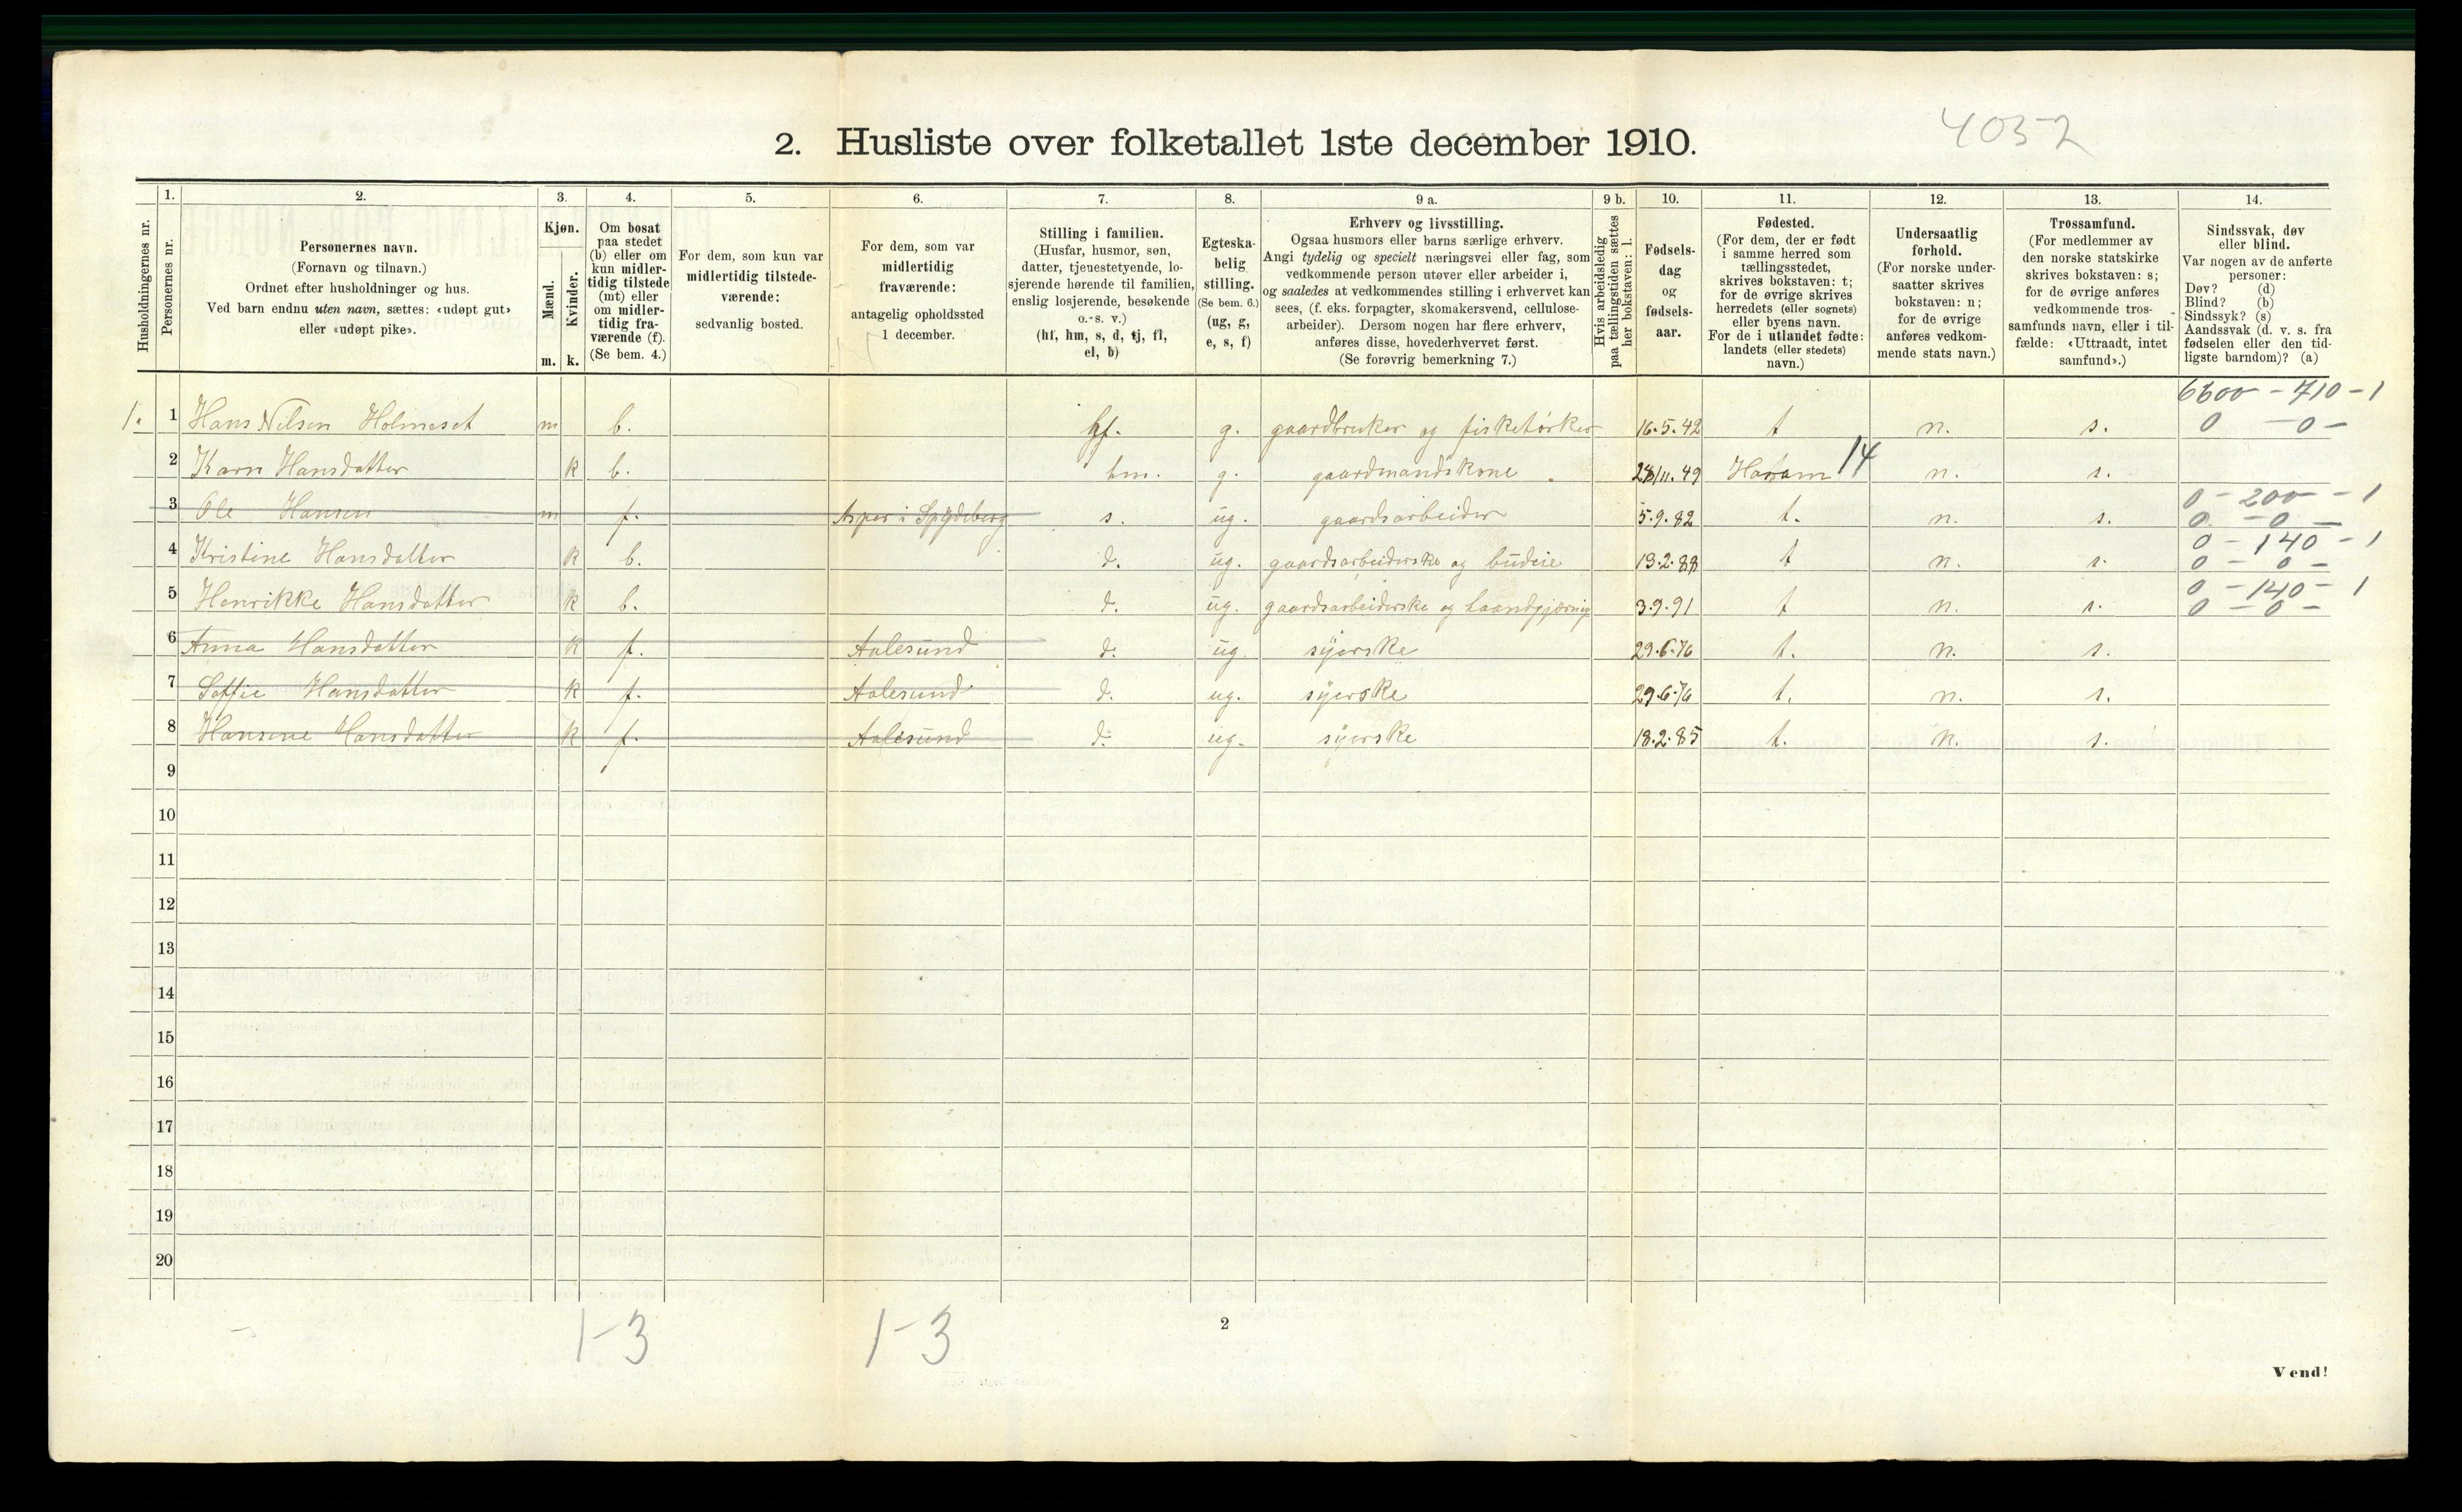 4052
2. Husliste over folketallet 1ste december 1910.
Husholdningernes nr.
1.
Personernes nr.
2.
Personernes navn.
(Fornavn og tilnavn.)
Ordnet efter husholdninger og hus.
Ved barn endnu uten navn, sættes: «udøpt gut»
eller «udøpt pike».
3.
Kjøn.
Mænd.
Kvinder.
m. k.
4.
Om bosat
paa stedet
(b) eller om
kun midler-
tidig tilstede
(mt) eller
om midler-
tidig fra-
værende (f).
(Se bem. 4.)
5.
For dem, som kun var
midlertidig tilstede-
værende:
sedvanlig bosted.
6.
For dem, som var
midlertidig
fraværende:
antagelig opholdssted
1 december.
7.
Stilling i familien.
(Husfar, husmor, søn,
datter, tjenestetyende, lo-
sjerende hørende til familien,
enslig losjerende, besøkende
o. s. v.)
(hf, hm, s, d, tj, fl,
el, b)
8.
Egteska-
belig
stilling.
(Se bem. 6.)
(ug, g,
e, s, f)
9 a.
Erhverv og livsstilling.
Ogsaa husmors eller barns særlige erhverv.
Angi tydelig og specielt næringsvei eller fag, som
vedkommende person utøver eller arbeider i,
og saaledes at vedkommendes stilling i erhvervet kan
sees, (f. eks. forpagter, skomakersvend, cellulose-
arbeider). Dersom nogen har flere erhverv,
anføres disse, hovederhvervet først.
(Se forøvrig bemerkning 7.)
9 b.
Hvis arbeidsledig
paa tællingstiden sættes
her bokstaven: l.
10.
Fødsels-
dag
og
fødsels-
aar.
11.
Fødested.
(For dem, der er født
i samme herred som
tællingsstedet,
skrives bokstaven: t;
for de øvrige skrives
herredets (eller sognets)
eller byens navn.
For de i utlandet fødte:
landets (eller stedets)
navn.)
12.
Undersaatlig
forhold.
(For norske under-
saatter skrives
bokstaven: n;
for de øvrige
anføres vedkom-
mende stats navn.)
13.
Trossamfund.
(For medlemmer av
den norske statskirke
skrives bokstaven: s;
for de øvrige anføres
vedkommende tros-
samfunds navn, eller i til-
fælde: «Uttraadt, intet
samfund».)
14.
Sindssvak, døv
eller blind.
Var nogen av de anførte
personer:
Døv? (d)
Blind? (b)
Sindssyk? (s)
Aandssvak (d. v. s. fra
fødselen eller den tid-
ligste barndom)? (a)
6600 - 710 - 1
1. 1 Hans Nilsen Holmeset m b. hf. g. gaardbruker og fisketørker 16.5.42 t n. s. 0 - 0 -
2 Karn Hansdatter k b. hm. g. gaardmandskone 28/11.49 Haram 14 n. s.
0 - 200 - 1
3 Ole Hansen m f. Asper i Spydeberg s. ug. gaardsarbeider 5.9.82 t. n. s. 0 - 0 -
0 - 140 - 1
4 Kristine Hansdatter k b. d. ug. gaardsarbeiderske og budeie 19.2.88 t n. s. 0 - 0 -
0 - 140 - 1
5 Henrikke Hansdatter k b. d. ug. gaardsarbeiderske og haandgjerning 3.9.91 t n. s. 0 - 0 -
6 Anna Hansdatter k f. Aalesund d. ug. syerske 29.6.76 t. n. s.
7 Soffie Hansdatter k f. Aalesund d. ug. syerske 29.6.76 t. n. s.
8 Hansine Hansdatter k f. Aalesund d. ug. syerske 18.2.85 t. n. s.
9
10
11
12
13
14
15
16
17
18
19
20
1-3 1-3
2
Vend!